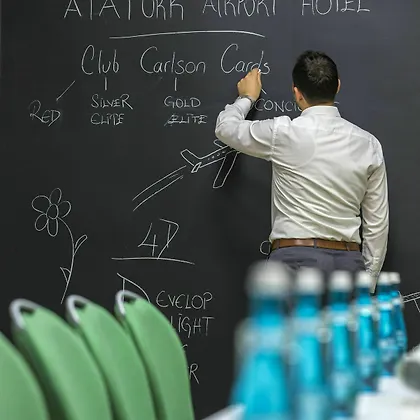 ATATURK AIRPORT HOTEL
Club Carlson Cards
RED SILVER ELITE GOLD ELITE
4D
EVELOP
IGHT